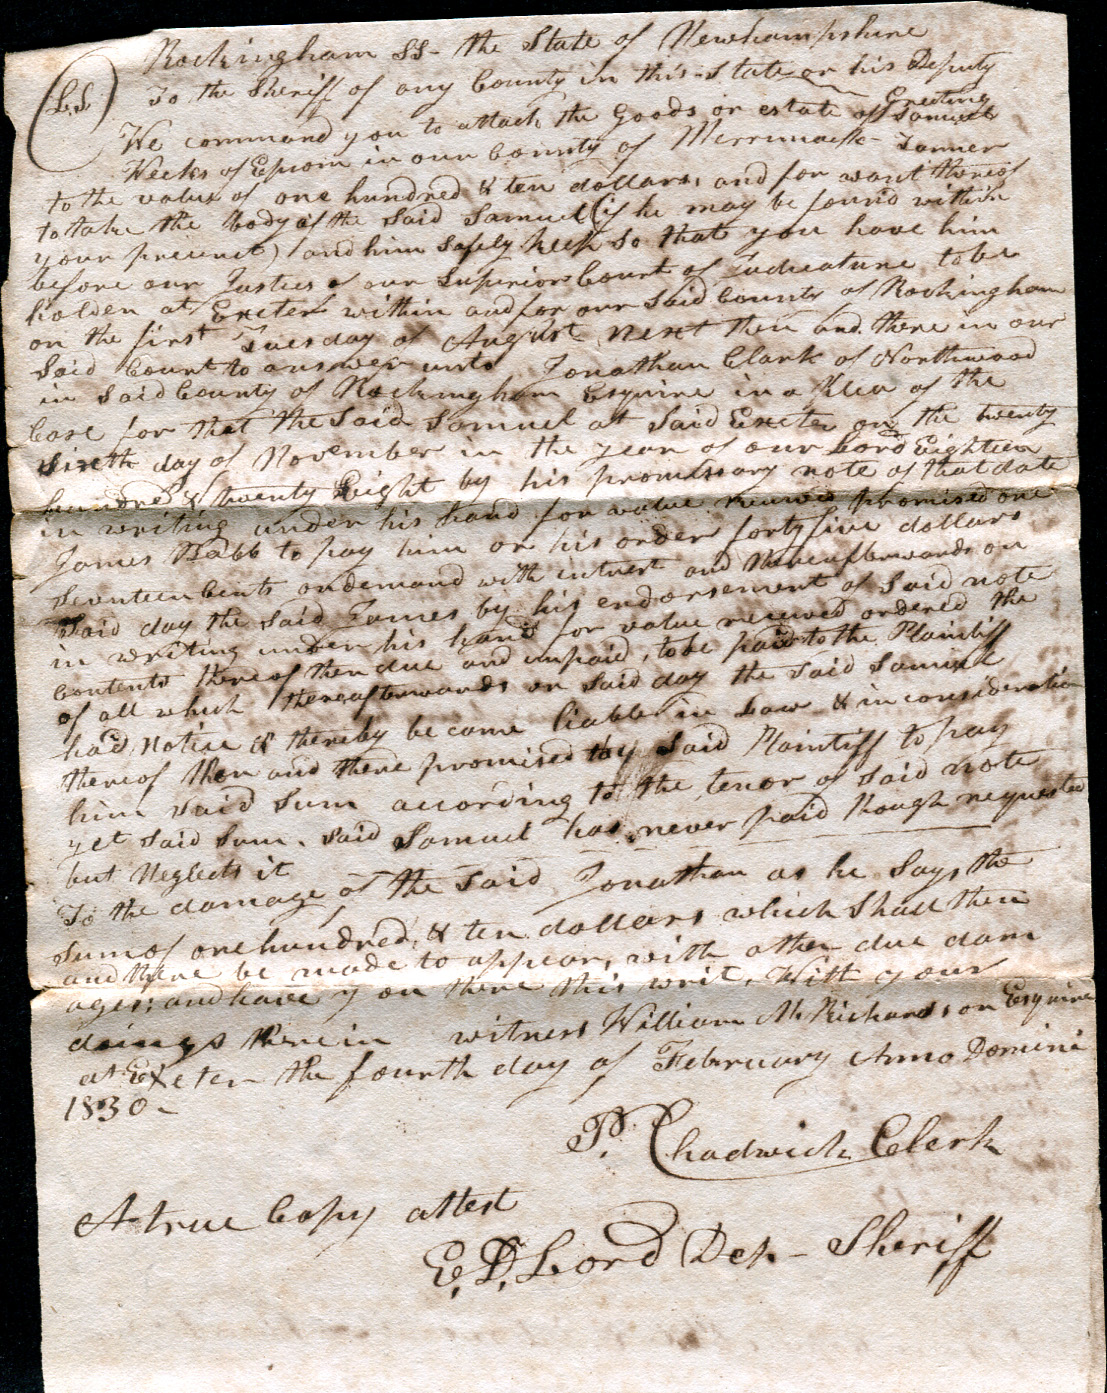 Rockingham SS - the State of Newhampshire
(L.S.) To the Sheriff of any County in this State or his Deputy
Greeting
We command you to attach the Goods or estate of Samuel
Weeks of Epsom in our County of Merrimack - Tanner
to the value of one hundred & ten dollars, and for want thereof
to take the body of the said Samuel (if he may be found within
your precinct) and him safely keep so that you have him
before our Justices of our Superior Court of Judicature to be
holden at Exeter within and for our said County of Rockingham
on the first Tuesday of August next then and there in our
Said Court to answer unto Jonathan Clark of Northwood
in said County of Rockingham Esquire in a Plea of the
Case for that the said Samuel at said Exeter on the twenty
sixth day of November in the year of our Lord Eighteen
hundred & twenty Eight by his promissory note of that date
in writing under his hand for value received promised one
James Babb to pay him or his order forty five dollars
Seventeen Cents on demand with intrest and thereafterwards on
Said day the said James by his endorsement of said note
in writing under his hand for value received ordered the
Contents thereof then due and unpaid, to be paid to the Plaintiff
of all which thereafterwards on said day the said Samuel
had Notice & thereby became liable in Law & in consideration
thereof then and there promised the said Plaintiff to pay
him said Sum according to the tenor of said note
yet said Sum, said Samuel has never paid though requested
but Neglects it
To the damage of the said Jonathan as he says, the
sum of one hundred, & ten dollars which shall then
and there be made to appear, with other due dam
ages; and have you there this writ, With your
doings therein witness William M. Richardson Esquire
at Exeter the fourth day of February Anno Domini
1830 -
P. Chadwick Clerk
A true Copy attest
E. D. Lord Dep - Sheriff